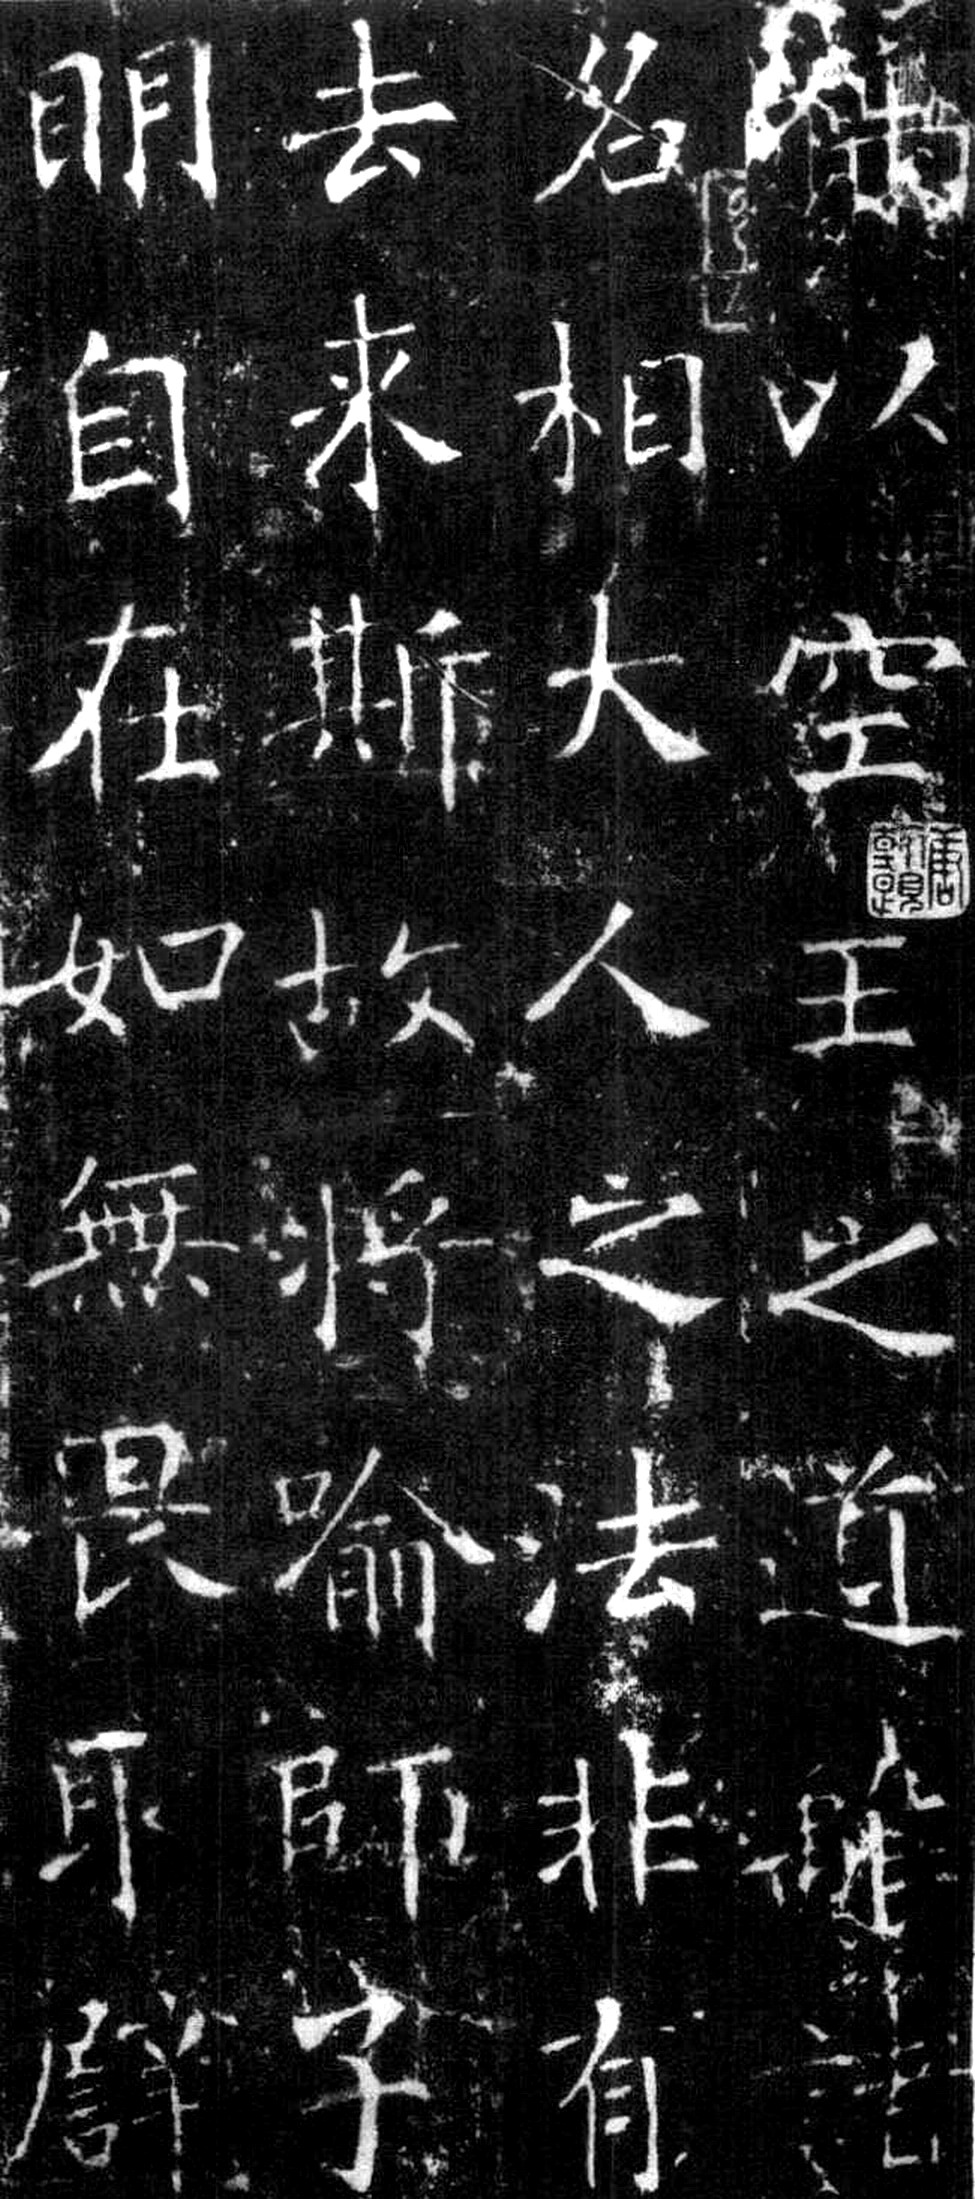 以空王之道離諸
名相大人之法非有
去來斯故將喻師子
明自在如無畏取譬